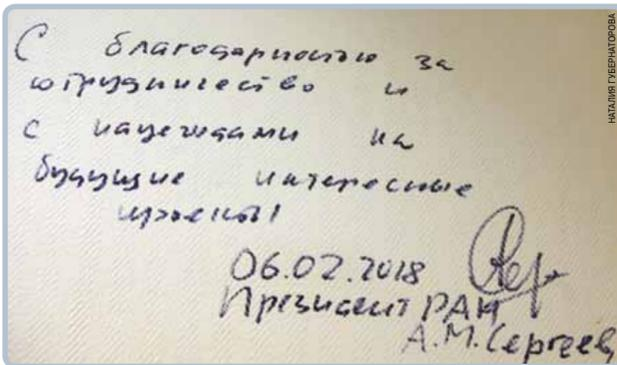 С благодарностью за
сотрудничество и
с надеждами на
будущие интересные
проекты!
06.02.2018
Президент РАН
А.М. Сергеев
НАТАЛИЯ ГУБЕРНАТОРОВА